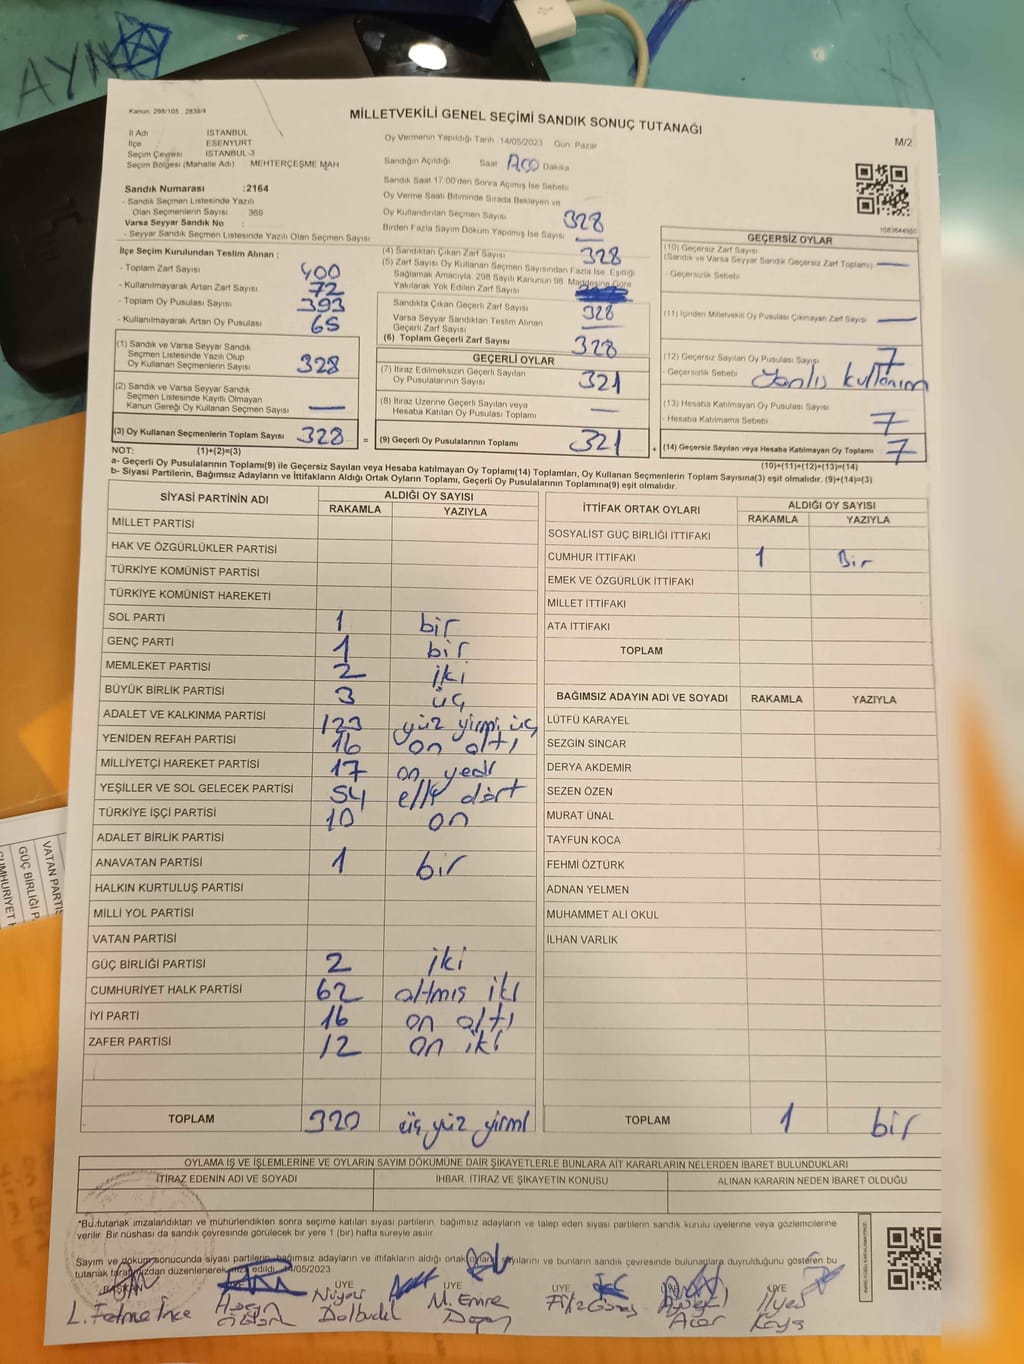 AYN
Kanun: 298/105 , 2839/4
MİLLETVEKİLİ GENEL SEÇİMİ SANDIK SONUÇ TUTANAĞI
M/2
İl Adı İSTANBUL
İlçe ESENYURT
Seçim Çevresi İSTANBUL-3
Seçim Bölgesi (Mahalle Adı) MEHTERÇEŞME MAH
Oy Vermenin Yapıldığı Tarih 14/05/2023 Gün Pazar
Sandığın Açıldığı Saat Dakika
Sandık Saat 17.00'den Sonra Açılmış İse Sebebi
Oy Verme Saati Bitiminde Sırada Bekleyen ve
Oy Kullandırılan Seçmen Sayısı 328
Birden Fazla Sayım Döküm Yapılmış İse Sayısı
Sandık Numarası :2164
- Sandık Seçmen Listesinde Yazılı
Olan Seçmenlerin Sayısı 369
Varsa Seyyar Sandık No :
- Seyyar Sandık Seçmen Listesinde Yazılı Olan Seçmen Sayısı
İlçe Seçim Kurulundan Teslim Alınan ;
- Toplam Zarf Sayısı 400
- Kullanılmayarak Artan Zarf Sayısı 72
- Toplam Oy Pusulası Sayısı 393
- Kullanılmayarak Artan Oy Pusulası 65
(1) Sandık ve Varsa Seyyar Sandık
Seçmen Listesinde Yazılı Olup
Oy Kullanan Seçmenlerin Sayısı 328
(2) Sandık ve Varsa Seyyar Sandık
Seçmen Listesinde Kayıtlı Olmayan
Kanun Gereği Oy Kullanan Seçmen Sayısı —
(3) Oy Kullanan Seçmenlerin Toplam Sayısı 328 =
(4) Sandıktan Çıkan Zarf Sayısı 328
(5) Zarf Sayısı Oy Kullanan Seçmen Sayısından Fazla İse, Eşitliği
Sağlamak Amacıyla, 298 Sayılı Kanunun 98. Maddesine Göre
Yakılarak Yok Edilen Zarf Sayısı
Sandıkta Çıkan Geçerli Zarf Sayısı 328
Varsa Seyyar Sandıktan Teslim Alınan
Geçerli Zarf Sayısı —
(6) Toplam Geçerli Zarf Sayısı 328
GEÇERLİ OYLAR
(7) İtiraz Edilmeksizin Geçerli Sayılan
Oy Pusulalarının Sayısı 321
(8) İtiraz Üzerine Geçerli Sayılan veya
Hesaba Katılan Oy Pusulası Toplamı —
(9) Geçerli Oy Pusulalarının Toplamı 321 +
GEÇERSİZ OYLAR
(10) Geçersiz Zarf Sayısı
(Sandık ve Varsa Seyyar Sandık Geçersiz Zarf Toplamı) —
- Geçersizlik Sebebi
(11) İçinden Milletvekili Oy Pusulası Çıkmayan Zarf Sayısı —
(12) Geçersiz Sayılan Oy Pusulası Sayısı 7
- Geçersizlik Sebebi Yanlış kullanım
(13) Hesaba Katılmayan Oy Pusulası Sayısı
- Hesaba Katılmama Sebebi 7
(14) Geçersiz Sayılan veya Hesaba Katılmayan Oy Toplamı 7
NOT: (1)+(2)=(3)
(10)+(11)+(12)+(13)=(14)
a- Geçerli Oy Pusulaları Toplamı(9) ile Geçersiz Sayılan veya Hesaba katılmayan Oy Toplamı(14) Toplamları, Oy Kullanan Seçmenlerin Toplam Sayısına(3) eşit olmalıdır. (9)+(14)=(3)
b- Siyasi Partilerin, Bağımsız Adayların ve İttifakların Aldığı Ortak Oyların Toplamı, Geçerli Oy Pusulalarının Toplamına(9) eşit olmalıdır.
SİYASİ PARTİNİN ADI ALDIĞI OY SAYISI
RAKAMLA YAZIYLA
MİLLET PARTİSİ
HAK VE ÖZGÜRLÜKLER PARTİSİ
TÜRKİYE KOMÜNİST PARTİSİ
TÜRKİYE KOMÜNİST HAREKETİ
SOL PARTİ 1 bir
GENÇ PARTİ 1 bir
MEMLEKET PARTİSİ 2 iki
BÜYÜK BİRLİK PARTİSİ 3 üç
ADALET VE KALKINMA PARTİSİ 123 yüz yirmi üç
YENİDEN REFAH PARTİSİ 16 on altı
MİLLİYETÇİ HAREKET PARTİSİ 17 on yedi
YEŞİLLER VE SOL GELECEK PARTİSİ 54 elli dört
TÜRKİYE İŞÇİ PARTİSİ 10 on
ADALET BİRLİK PARTİSİ
ANAVATAN PARTİSİ 1 bir
HALKIN KURTULUŞ PARTİSİ
MİLLİ YOL PARTİSİ
VATAN PARTİSİ
GÜÇ BİRLİĞİ PARTİSİ 2 iki
CUMHURİYET HALK PARTİSİ 62 altmış iki
İYİ PARTİ 16 on altı
ZAFER PARTİSİ 12 on iki
TOPLAM 320 üç yüz yirmi
İTTİFAK ORTAK OYLARI ALDIĞI OY SAYISI
RAKAMLA YAZIYLA
SOSYALİST GÜÇ BİRLİĞİ İTTİFAKI
CUMHUR İTTİFAKI 1 Bir
EMEK VE ÖZGÜRLÜK İTTİFAKI
MİLLET İTTİFAKI
ATA İTTİFAKI
TOPLAM
BAĞIMSIZ ADAYIN ADI VE SOYADI RAKAMLA YAZIYLA
LÜTFÜ KARAYEL
SEZGİN SİNCAR
DERYA AKDEMİR
SEZEN ÖZEN
MURAT ÜNAL
TAYFUN KOCA
FEHMİ ÖZTÜRK
ADNAN YELMEN
MUHAMMET ALİ OKUL
İLHAN VARLIK
TOPLAM 1 bir
OYLAMA İŞ VE İŞLEMLERİNE VE OYLARIN SAYIM DÖKÜMÜNE DAİR ŞİKAYETLERLE BUNLARA AİT KARARLARIN NELERDEN İBARET BULUNDUKLARI
İTİRAZ EDENİN ADI VE SOYADI İHBAR, İTİRAZ VE ŞİKAYETİN KONUSU ALINAN KARARIN NEDEN İBARET OLDUĞU
*Bu tutanak imzalandıktan ve mühürlendikten sonra seçime katılan siyasi partilerin, bağımsız adayların ve talep eden siyasi partilerin sandık kurulu üyelerine veya gözlemcilerine
verilir. Bir nüshası da sandık çevresinde görülecek bir yere 1 (bir) hafta süreyle asılır.
Sayım ve döküm sonucunda siyasi partilerin, bağımsız adayların ve ittifakların aldığı ortak sayılarını ve bunların sandık çevresinde bulunanlara duyurulduğunu gösteren bu
tutanak tarafımızdan düzenlenerek edildi. 14/05/2023
BAŞKAN ÜYE ÜYE ÜYE ÜYE
L. Fatma İnce
M. Emre
İlyas
Kaya
VATAN PARTİS
GÜÇ BİRLİĞİ P